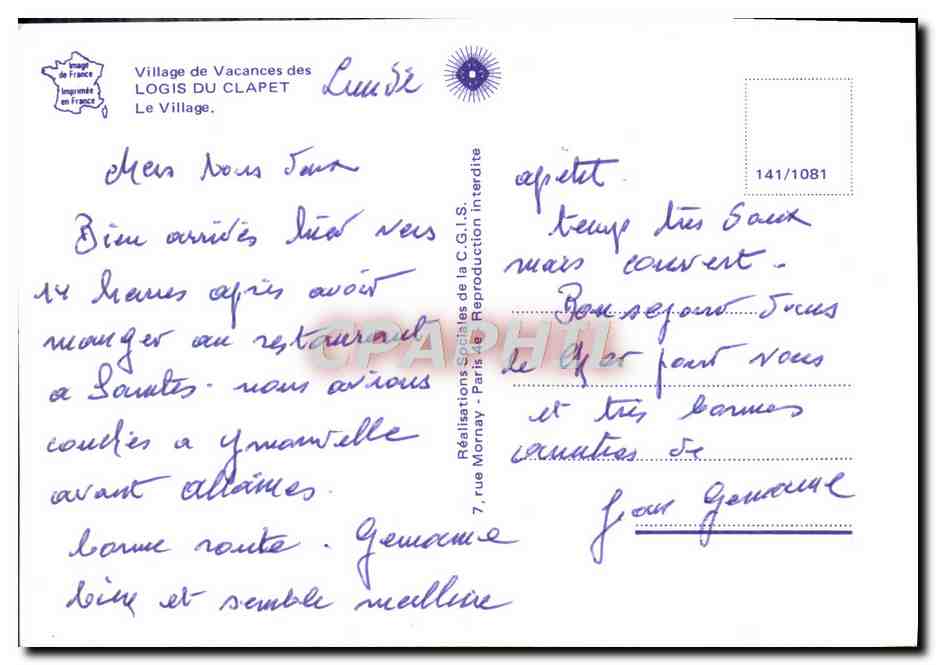 Image
de France
Imprimée
en France
Village de Vacances des
LOGIS DU CLAPET
Le Village.
Lundi
Chers vous Deux
Bien arrivés hier vers
14 heures après avoir
manger au restaurant
a Saintes. nous avions
couchés a
avant
bonne route. Germaine
bien et semble meilleure
apétit.
temps très Doux
mais couvert.
Bon sejour Dans
le pour vous
et très bonnes
amitiés de
Jean Germaine
141/1081
Réalisations Sociales de la C.G.I.S.
7, rue Mornay - Paris 4e - Reproduction interdite
CPAPHIL